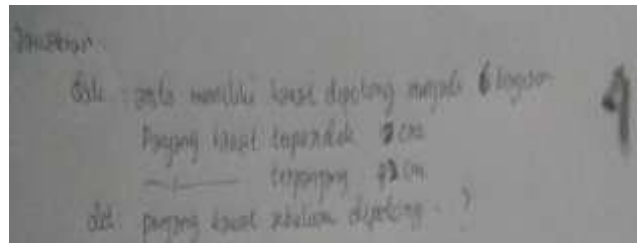 Jawaban:
dik : anto memiliki kawat dipotong menjadi 6 bagian
Panjang kawat terpendek 3 cm
—〃— terpanjang 92 cm
dit : panjang kawat sebelum dipotong - ?
4